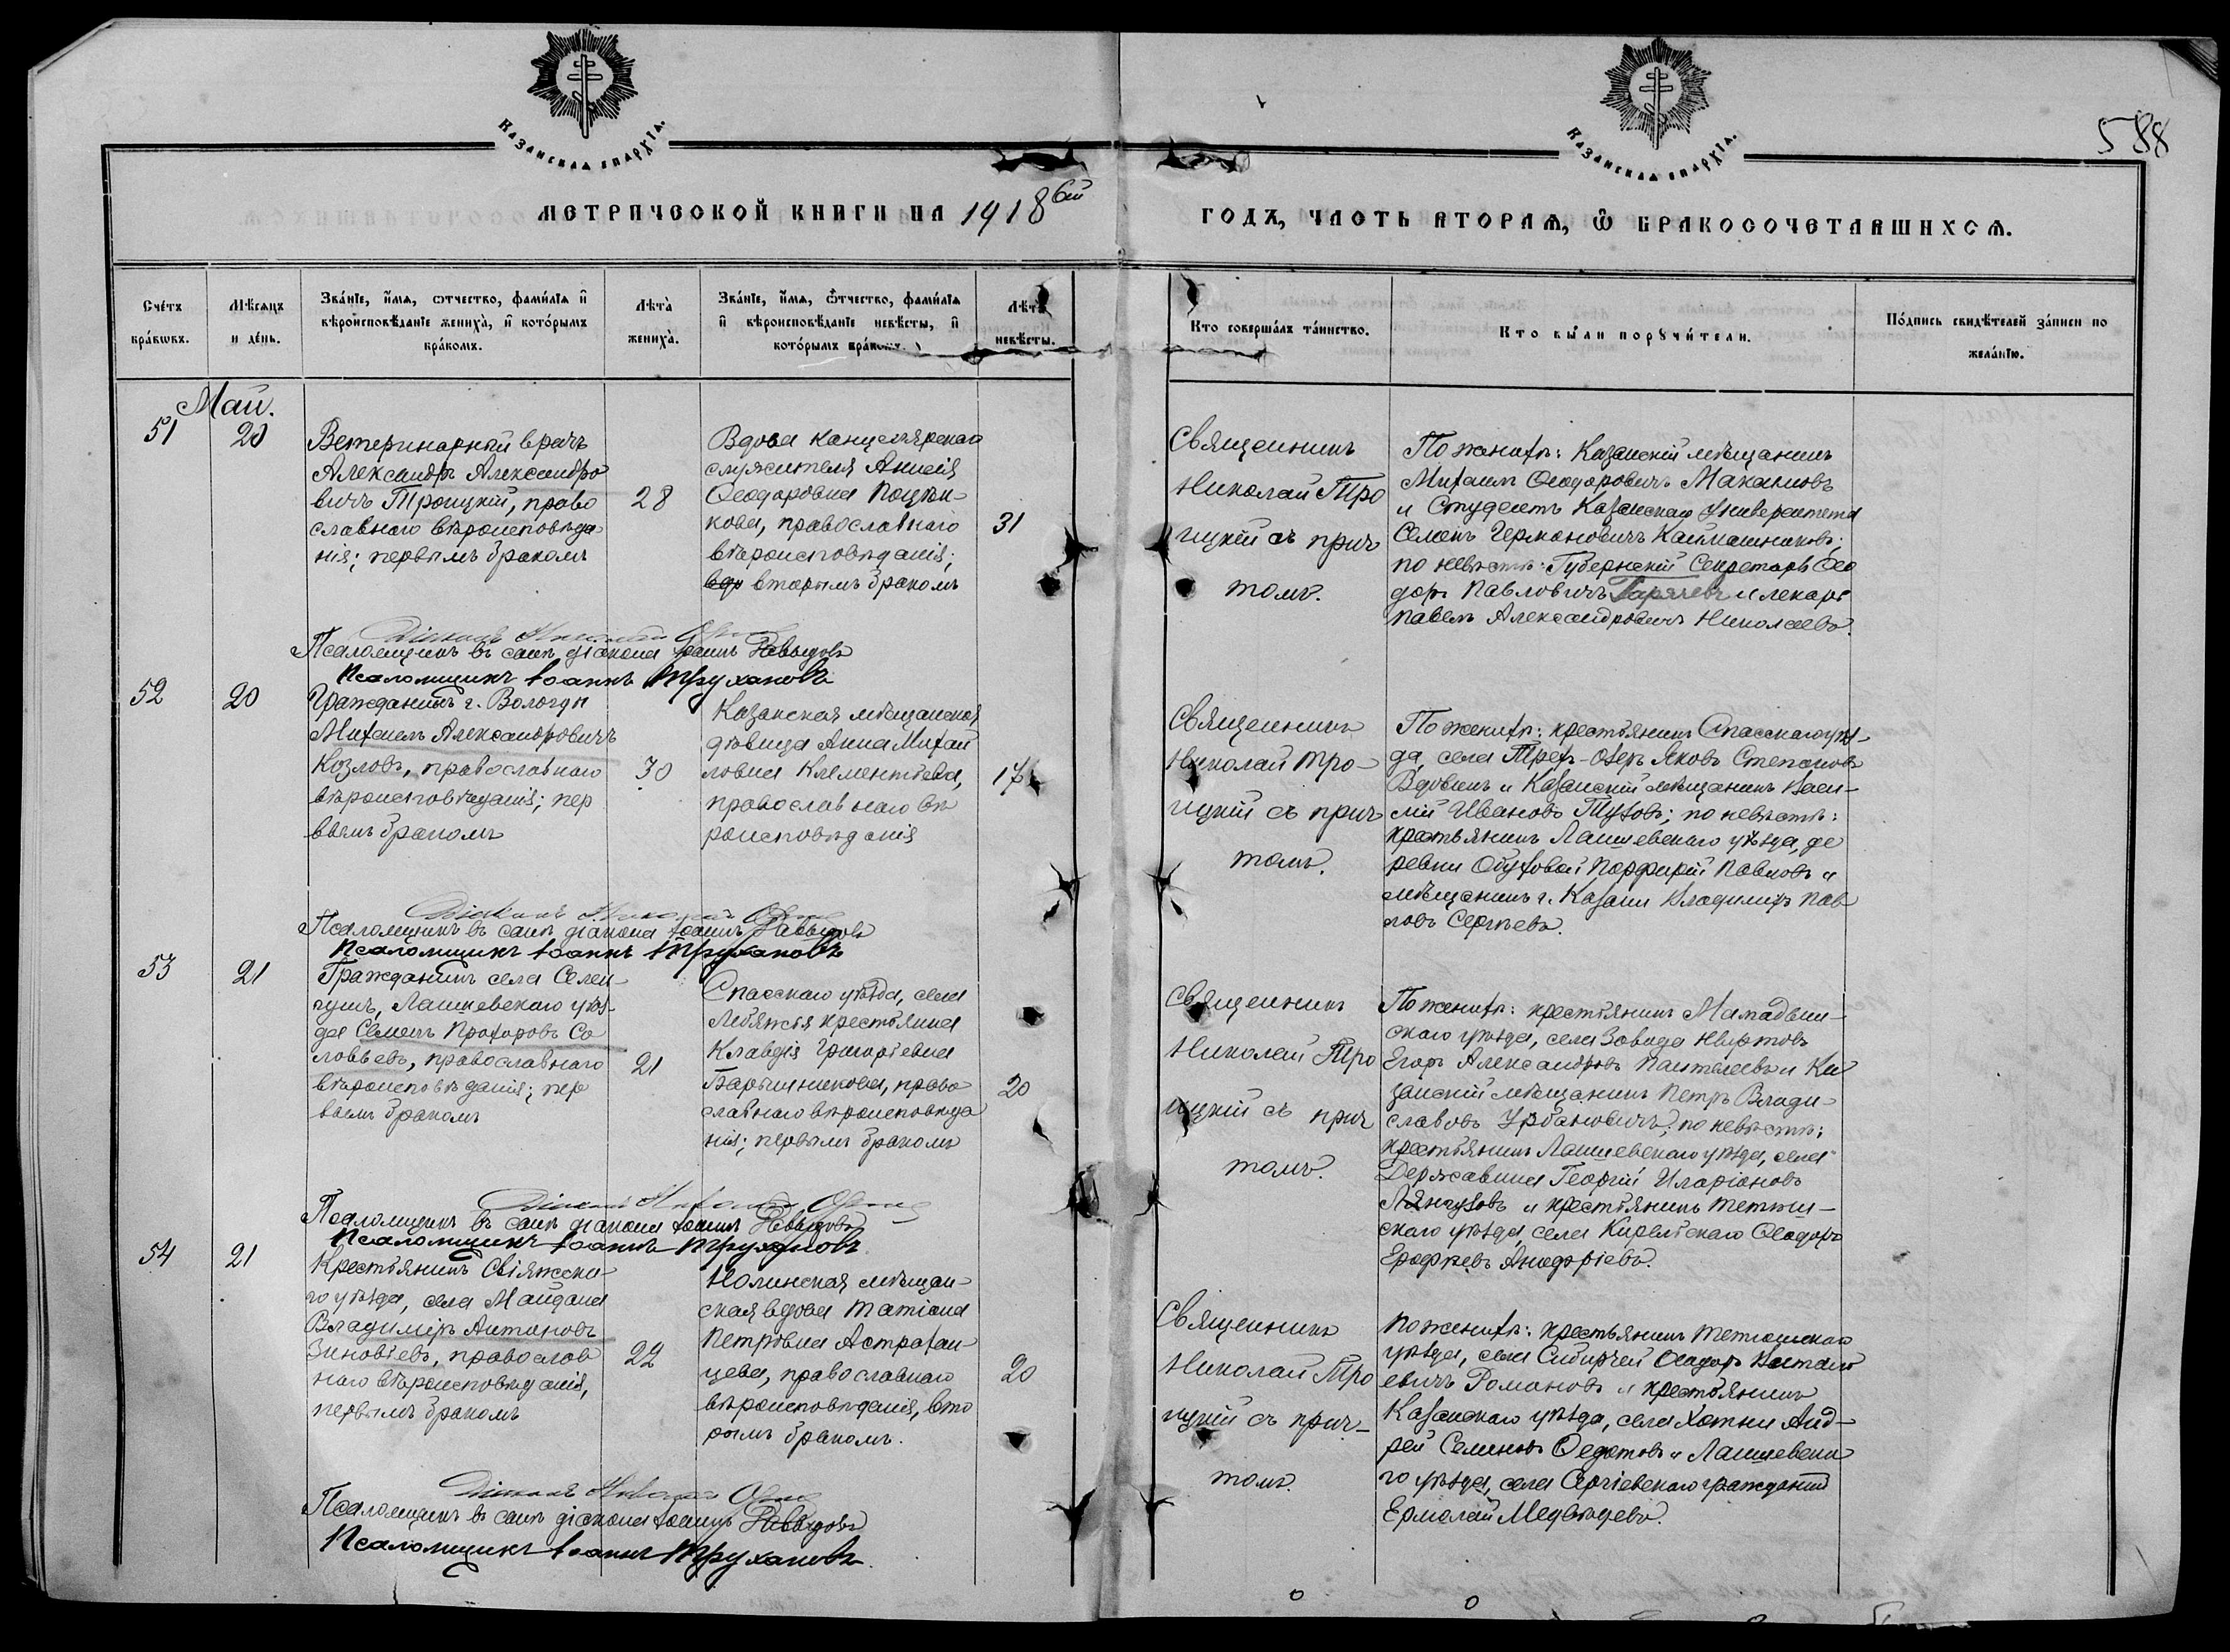 Казанская епархїя.
Казанская епархїя.
588
МЕТРИЧЕСКОЙ КНИГИ НА 1918 ой
ГОДЪ, ЧАСТЬ ВТОРАЯ, Ѡ БРАКОСОЧЕТАВШИХСЯ.
Сче́тъ бра́кѡвъ.
Мѣ́сяцъ и де́нь.
Зва́нїе, и҆́мя, ѻ҆́тчество, фами́лїя и҆ вѣроисповѣ́данїе жениха̀, и҆ кото́рымъ бра́комъ.
Лѣта̀ жениха̀.
Зва́нїе, и҆́мя, ѻ҆́тчество, фами́лїя и҆ вѣроисповѣ́данїе невѣ́сты, и҆ кото́рымъ бра́комъ.
Лѣта̀ невѣ́сты.
Кто соверша́лъ та́инство.
Кто бы́ли порꙋчи́тели.
По́дпись свидѣ́телей за́писи по жела́нїю.
Май.
51
20
Ветеринарный врачъ
Александръ Александро
вичъ Троицкій, право
славнаго вѣроисповѣда
нія; первымъ бракомъ
28
Вдова канцелярскаго
служителя Анисія
Ѳеодоровна
кова, православнаго
вѣроисповѣданія;
вторымъ бракомъ
31
Священникъ
Николай Тро
ицкій съ прич
томъ.
По женихѣ: Казанскій мѣщанинъ
Михаилъ Ѳеодоровичъ Макановъ
и Студентъ Казанскаго Университета
Семенъ Германовичъ Каймашниковъ;
по невѣстѣ: Губернскій Секретарь Ѳео
доръ Павловичъ Горячевъ и лекарь
Павелъ Александровичъ Николаевъ.
Діаконъ Николай
Псаломщикъ въ санѣ діакона Іоаннъ Давыдовъ
Псаломщикъ Іоаннъ Трухановъ
52
20
Гражданинъ г. Вологды
Михаилъ Александровичъ
Козловъ, православнаго
вѣроисповѣданія; пер
вымъ бракомъ
30
Казанская мѣщанская
дѣвица Анна Михай
ловна Клементьева,
православнаго вѣ
роисповѣданія
17
Священникъ
Николай Тро
ицкій съ прич
томъ.
По женихѣ: крестьянинъ Спасскаго уѣз-
да, села Трех-Озеръ Яковъ Степановъ
Вдовинъ и Казанскій мѣщанинъ Васи-
лій Ивановъ Тузовъ; по невѣстѣ:
крестьянинъ Лаишевскаго уѣзда, де
ревни Обуховой Порфирій Павловъ и
мѣщанинъ г. Казани Владимиръ Пав
ловъ Сергѣевъ.
Діаконъ Николай
Псаломщикъ въ санѣ діакона Іоаннъ Давыдовъ
Псаломщикъ Іоаннъ Трухановъ
53
21
Гражданинъ села Селен
гушъ, Лаишевскаго уѣз-
да Семенъ Прохоровъ Со
ловьевъ, православнаго
вѣроисповѣданія; пер
вымъ бракомъ
21
Спасскаго уѣзда, села
Лебяжья крестьянка
Клавдія Григорьевна
Барышникова, право
славнаго вѣроисповѣда
нія; первымъ бракомъ
20
Священникъ
Николай Тро
ицкій съ прич
томъ.
По женихѣ: крестьянинъ Мамадыш-
скаго уѣзда, села Завода
Егоръ Александровъ Пантелеевъ и Ка
занскій мѣщанинъ Петръ Влади-
славовъ Урбановичъ; по невѣстѣ:
крестьянинъ Лаишевскаго уѣзда, села
Державина Георгій Иларіоновъ
и крестьянинъ Тетюш-
скаго уѣзда, села Кирельскаго Ѳеодоръ
Ерофѣевъ
Діаконъ Николай
Псаломщикъ въ санѣ діакона Іоаннъ Давыдовъ
Псаломщикъ Іоаннъ Трухановъ
54
21
Крестьянинъ Свіяжска-
го уѣзда, села Майдана
Владиміръ Антоновъ
Зиновьевъ, православ
наго вѣроисповѣданія,
первымъ бракомъ
22
Нолинская мѣщан-
ская вдова Татіана
Петровна Астрахан-
цева, православнаго
вѣроисповѣданія, вто
рымъ бракомъ.
20
Священникъ
Николай Тро
ицкій съ прич-
томъ.
По женихѣ: крестьянинъ Тетюшскаго
уѣзда, села Сибирчей Ѳеодоръ
евичъ Романовъ и крестьянинъ
Казанскаго уѣзда, села Хотни Анд-
рей Семеновъ Ѳедотовъ и Лаишевска
го уѣзда, села Сергіевскаго гражданинъ
Ермолай Медвѣдевъ.
Діаконъ Николай
Псаломщикъ въ санѣ діакона Іоаннъ Давыдовъ
Псаломщикъ Іоаннъ Трухановъ